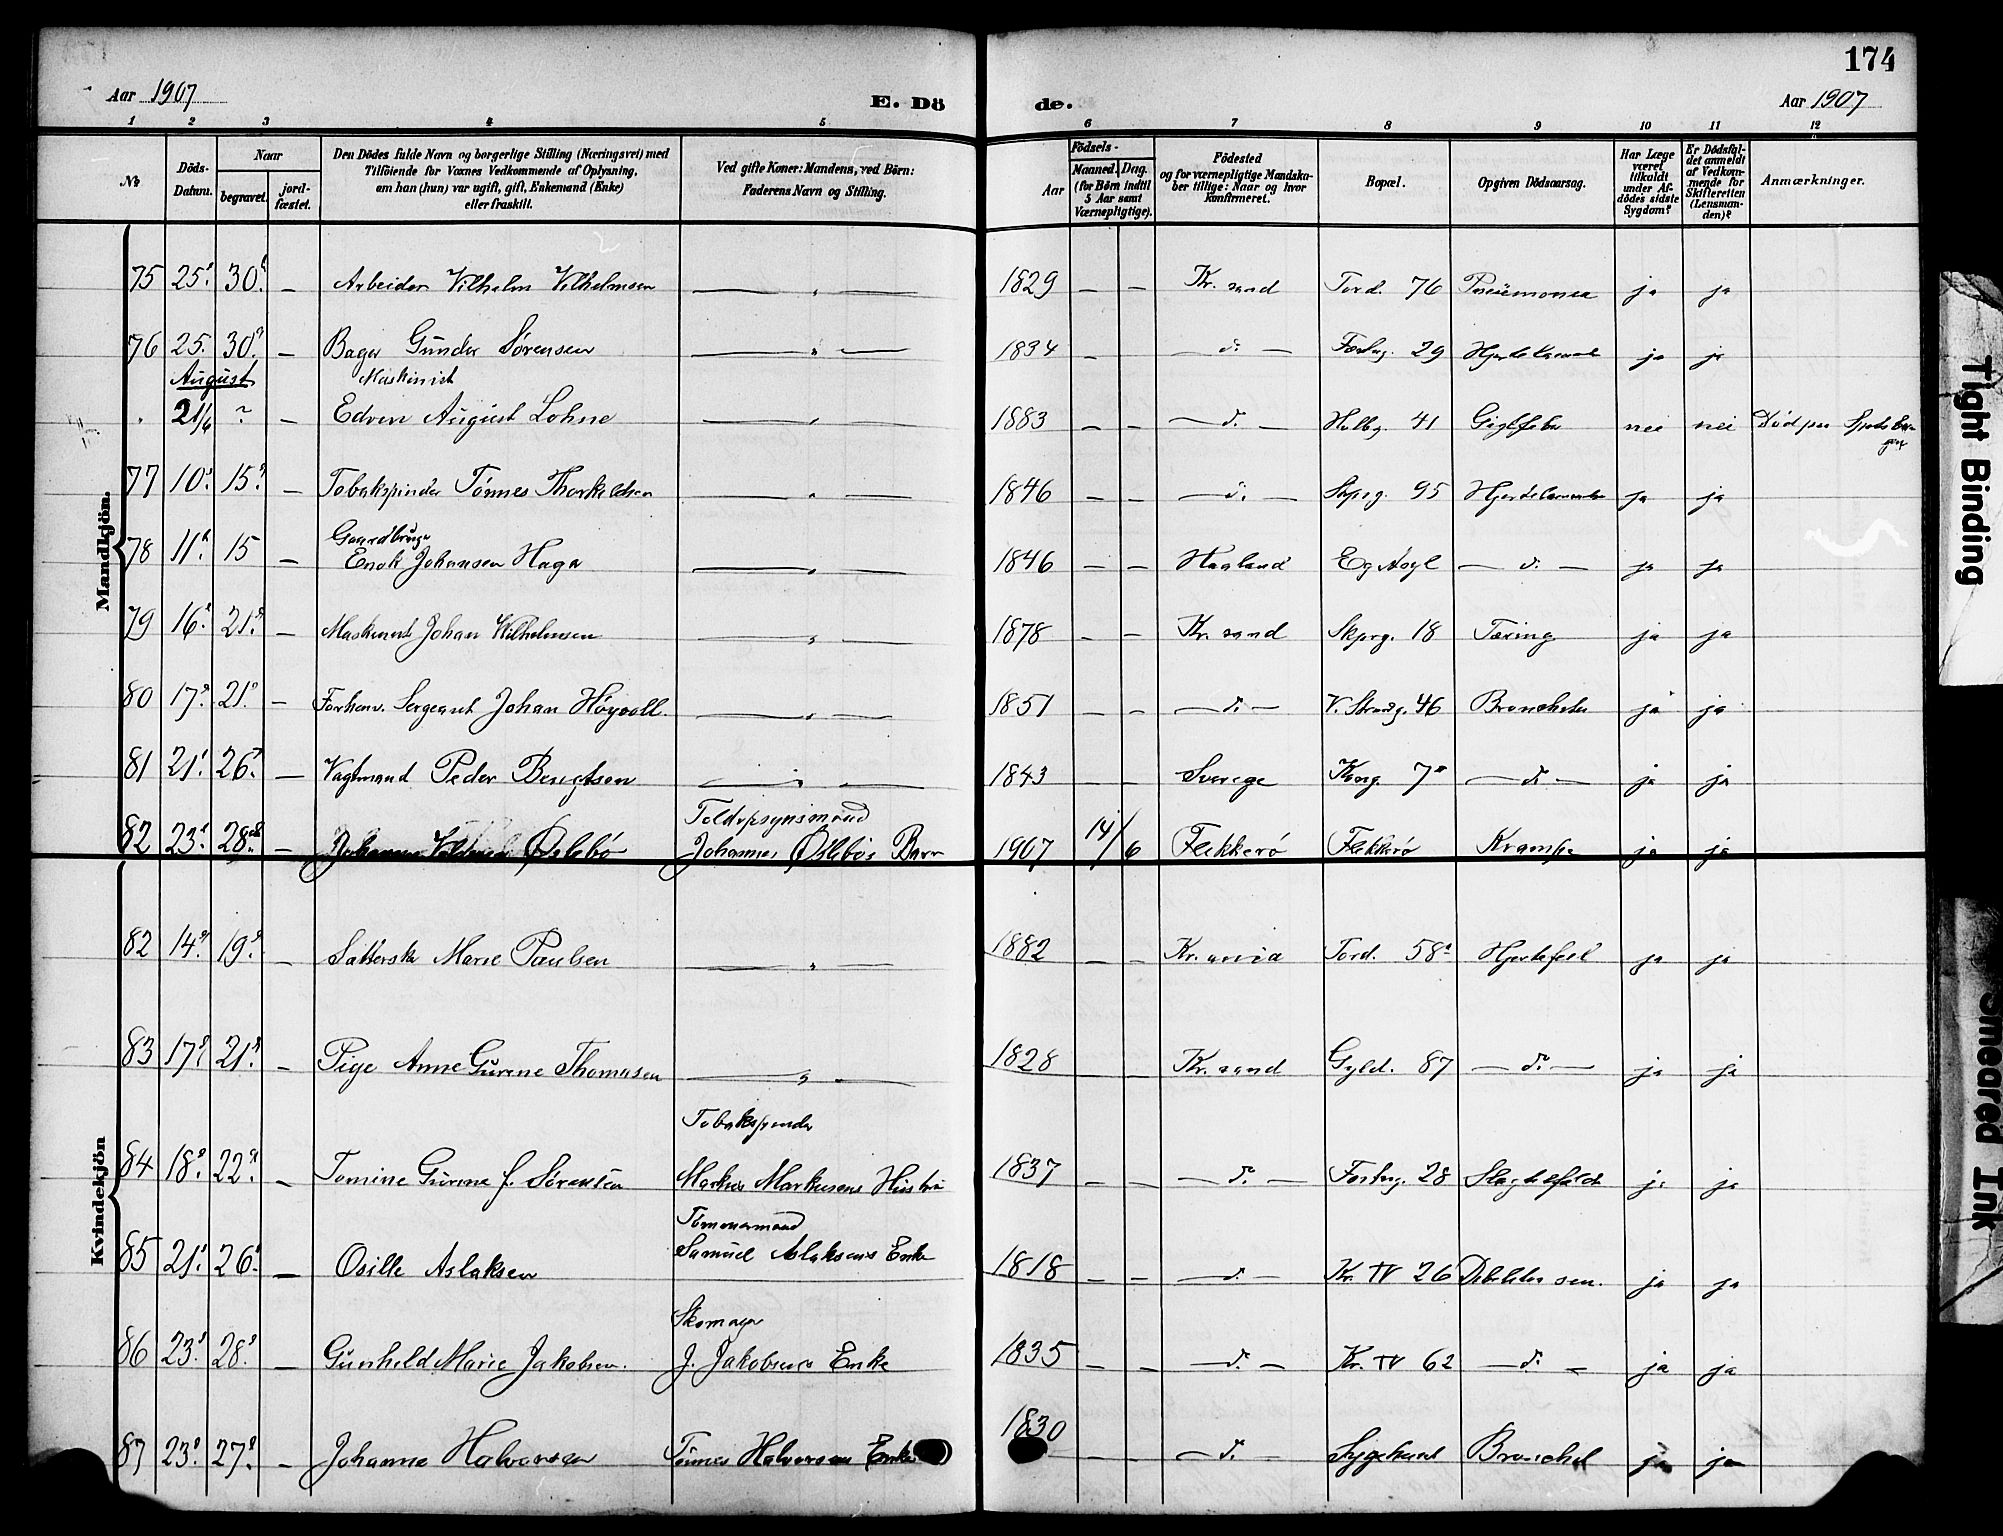 174
Aar 1907
E. Dö
de.
Aar 1907
1 2 3 4 5 6 7 8 9 10 11 12
No
Döds-Datum.
Naar
begravet.
jord-fæstet.
Den Dödes fulde Navn og borgerlige Stilling (Næringsvei) med
Tilföiende for Voxnes Vedkommende af Oplysning,
om han (hun) var ugift, gift, Enkemand (Enke)
eller fraskilt.
Ved gifte Koner: Mandens, ved Börn:
Faderens Navn og Stilling.
Födsels-
Aar
Maaned. Dag.
(for Börn indtil
5 Aar samt
Værnepligtige).
Födested
og for værnepligtige Mandska-
ber tillige: Naar og hvor
konfirmeret.
Bopæl.
Opgiven Dödsaarsag.
Har Læge
været
tilkaldt
under Af-
dödes sidste
Sygdom?
Er Dödsfal-
det anmeldt
af Vedkom-
mende for
Skifteretten
(Lensman-
den)?
Anmærkninger.
Mandkjön.
75 25. 30. — Arbeider Vilhelm Vilhelmsen — „ — 1829 — — Kr.sand Tord. 76 Pneumonia ja ja
76 25. 30. — Bager Gunder Sørensen — „ — 1834 — — d. — Festng. 29 Hjertelammelse ja ja
August
Maskinist
21/6 ? — Edvin August Lohne — „ — 1883 — — — d. — Holbg. 41 Gigtfeber nei nei Död paa Spidsber-
gen
77 10. 15. — Tobakspinder Tönnes Thorkildsen — „ — 1846 — — — d. — Skprg. 95 Hjertelammelse ja ja
Gaardbruger
78 11. 15 — Enok Johansen Haga — „ — 1846 — — Haaland Eg Asyl — d. — ja ja
79 16. 21. — Maskinist Johan Wilhelmsen — „ — 1878 — — Kr.sand Skprg. 18 Tæring ja ja
80 17. 21. — Forhenv. Sergeant Johan Høyvoll. — „ — 1851 — — — d. — V. Strandg. 46 Bronchitis ja ja
81 21. 26. — Vagtmand Peder Bengtsen — „ — 1843 — — Sverige Kong. 7 — d. — ja ja
Toldopsynsmand
82 23. 28. — Johannes Øslebø Johannes Øslebøs Barn 1907 14/6 Flekkerø Flekkerø Krampe ja ja
Kvindekjön
82 14. 19. — Sætterske Marie Paulsen — „ — 1882 — — Kr.ania Tord. 58 Hjertefeil ja ja
83 17. 21. — Pige Anne Gurine Thomasen — „ — 1828 — — Kr.sand Gyld. 87 — d. — ja ja
Tobakspinder
84 18. 22. — Tomine Gurine f. Sørensen Markus Markusens Hustru 1837 — — — d. — Festng. 28 Slagtilfælde ja ja
Tömmermand
85 21. 26. — Osille Aslaksen Samuel Aslaksens Enke 1818 — — — d. — Kr. IV 26 Debilitas sen. ja ja
Skomager
86 23. 28. — Gunhild Marie Jakobsen. J. Jakobsens Enke 1835 — — — d. — Kr. IV 62 — d. — ja ja
87 23. 27. — Johanne Halvorsen Tönnes Halvorsens Enke 1830 — — — d. — Sygehuset Bronchit ja ja
Tight Binding
Smeared Ink